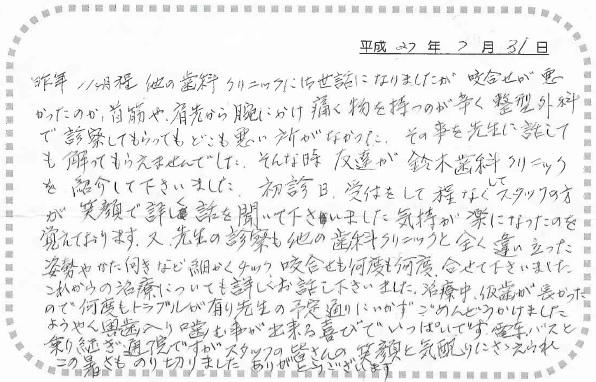 平成 27 年 7 月 31 日
昨年 11ヶ月程 他の歯科クリニックにお世話になりましたが 咬合せが悪
かったのか、首筋や、肩先から 腕にかけ 痛く 物を持つのが辛く 整型外科
で 診察してもらっても どこも悪い所がなかった、その事を先生に話して
も 解ってもらえませんでした、そんな時 友達が 鈴木歯科クリニック
を 紹介して下さいました。初診日、受付をして 程なくしてスタッフの方
が 笑顔で詳しく話を聞いて下さいました 気持が楽になったのを
覚えております、又、先生の診察も他の歯科クリニックと全く違い立った
姿勢やかた向きなど 細かくチェック、咬合せも何度も何度、合せて下さいました
これからの治療についても詳しくお話し下さいました、治療中、仮歯が長かった
ので何度もトラブルが有り先生の予定通りにいかずごめんどうかけました
ようやく奥歯入り噛む事が出来る喜びでいっぱいです 電車、バスと
乗り継ぎ通院ですがスタッフの皆さんの笑顔と気配りにささえられ
この暑さものり切りました ありがとうございます